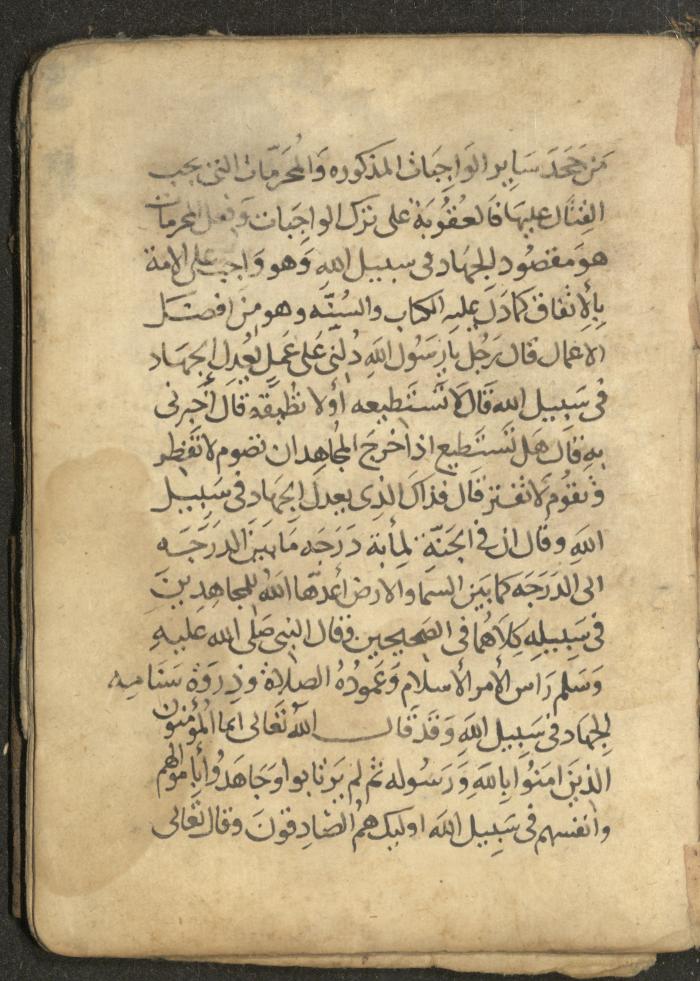 مَن جَحَدَ سَايِر الوَاجِبَات المذكوره وَالمُحَرّمَات التى يجب
القِتَال عليهَا فالعُقُوبَة على تَرك الواجِبَات وَفعل المحرمات
هو مَقصُود الجهَاد فى سبيل اللهِ وَهو وَاجب على الامة
بِالاِتفاق كمَا دَل عليهِ الكتاب والسُنّه وهو مِن افضَل
الاعمال قال رَجُل يا رَسُول اللهِ دُلنى عَلى عَمل يَعْدِل الجهَاد
فى سَبيل الله قَالَ لا تَستَطيعه أو لا تطيقه قال أَخبرنى
بهِ قال هَل تَستَطيع اذا خَرَجَ المُجاهِد ان تصُوم لا تَفطر
وَتقُوم لَا تفتر قال فذاكَ الذِى يعدل الجهَاد فى سَبِيل
اللهِ وقال ان فى الجَنّة لمأية دَرَجَه مَا بَينَ الدَرَجَه
الى الدَرَجَه كما بَين السمَا والارض أعدّها اللهُ للمجاهِدِينَ
فى سَبِيلِه كِلَاهُمَا فى الصَحيحين وقال النبى صَلى الله عليهِ
وَسَلم رَاس الأمر الأسلام وَعَمودُهُ الصَلاة وَذِروَة سَنَامِه
الجهَاد فى سَبِيل اللهِ وَقَد قَال اللهُ تَعَالى انما المُؤمنُون
الذينَ امَنُوا بِاللهِ وَرَسُولهِ ثم لم يَرتابوا وَجَاهَدُوا بِأموَالهم
وَانفسهم فى سَبِيل اللهِ اوليك هم الصَادِقُونَ وقال تَعَالى